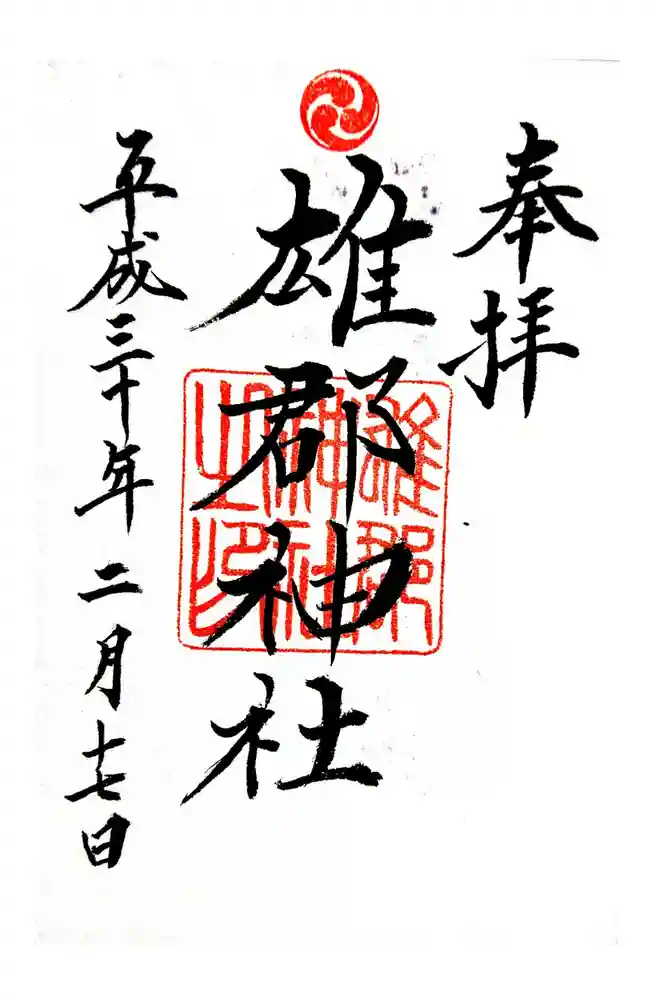 奉拝
雄郡神社
雄郡神社之印
平成三十年二月十七日